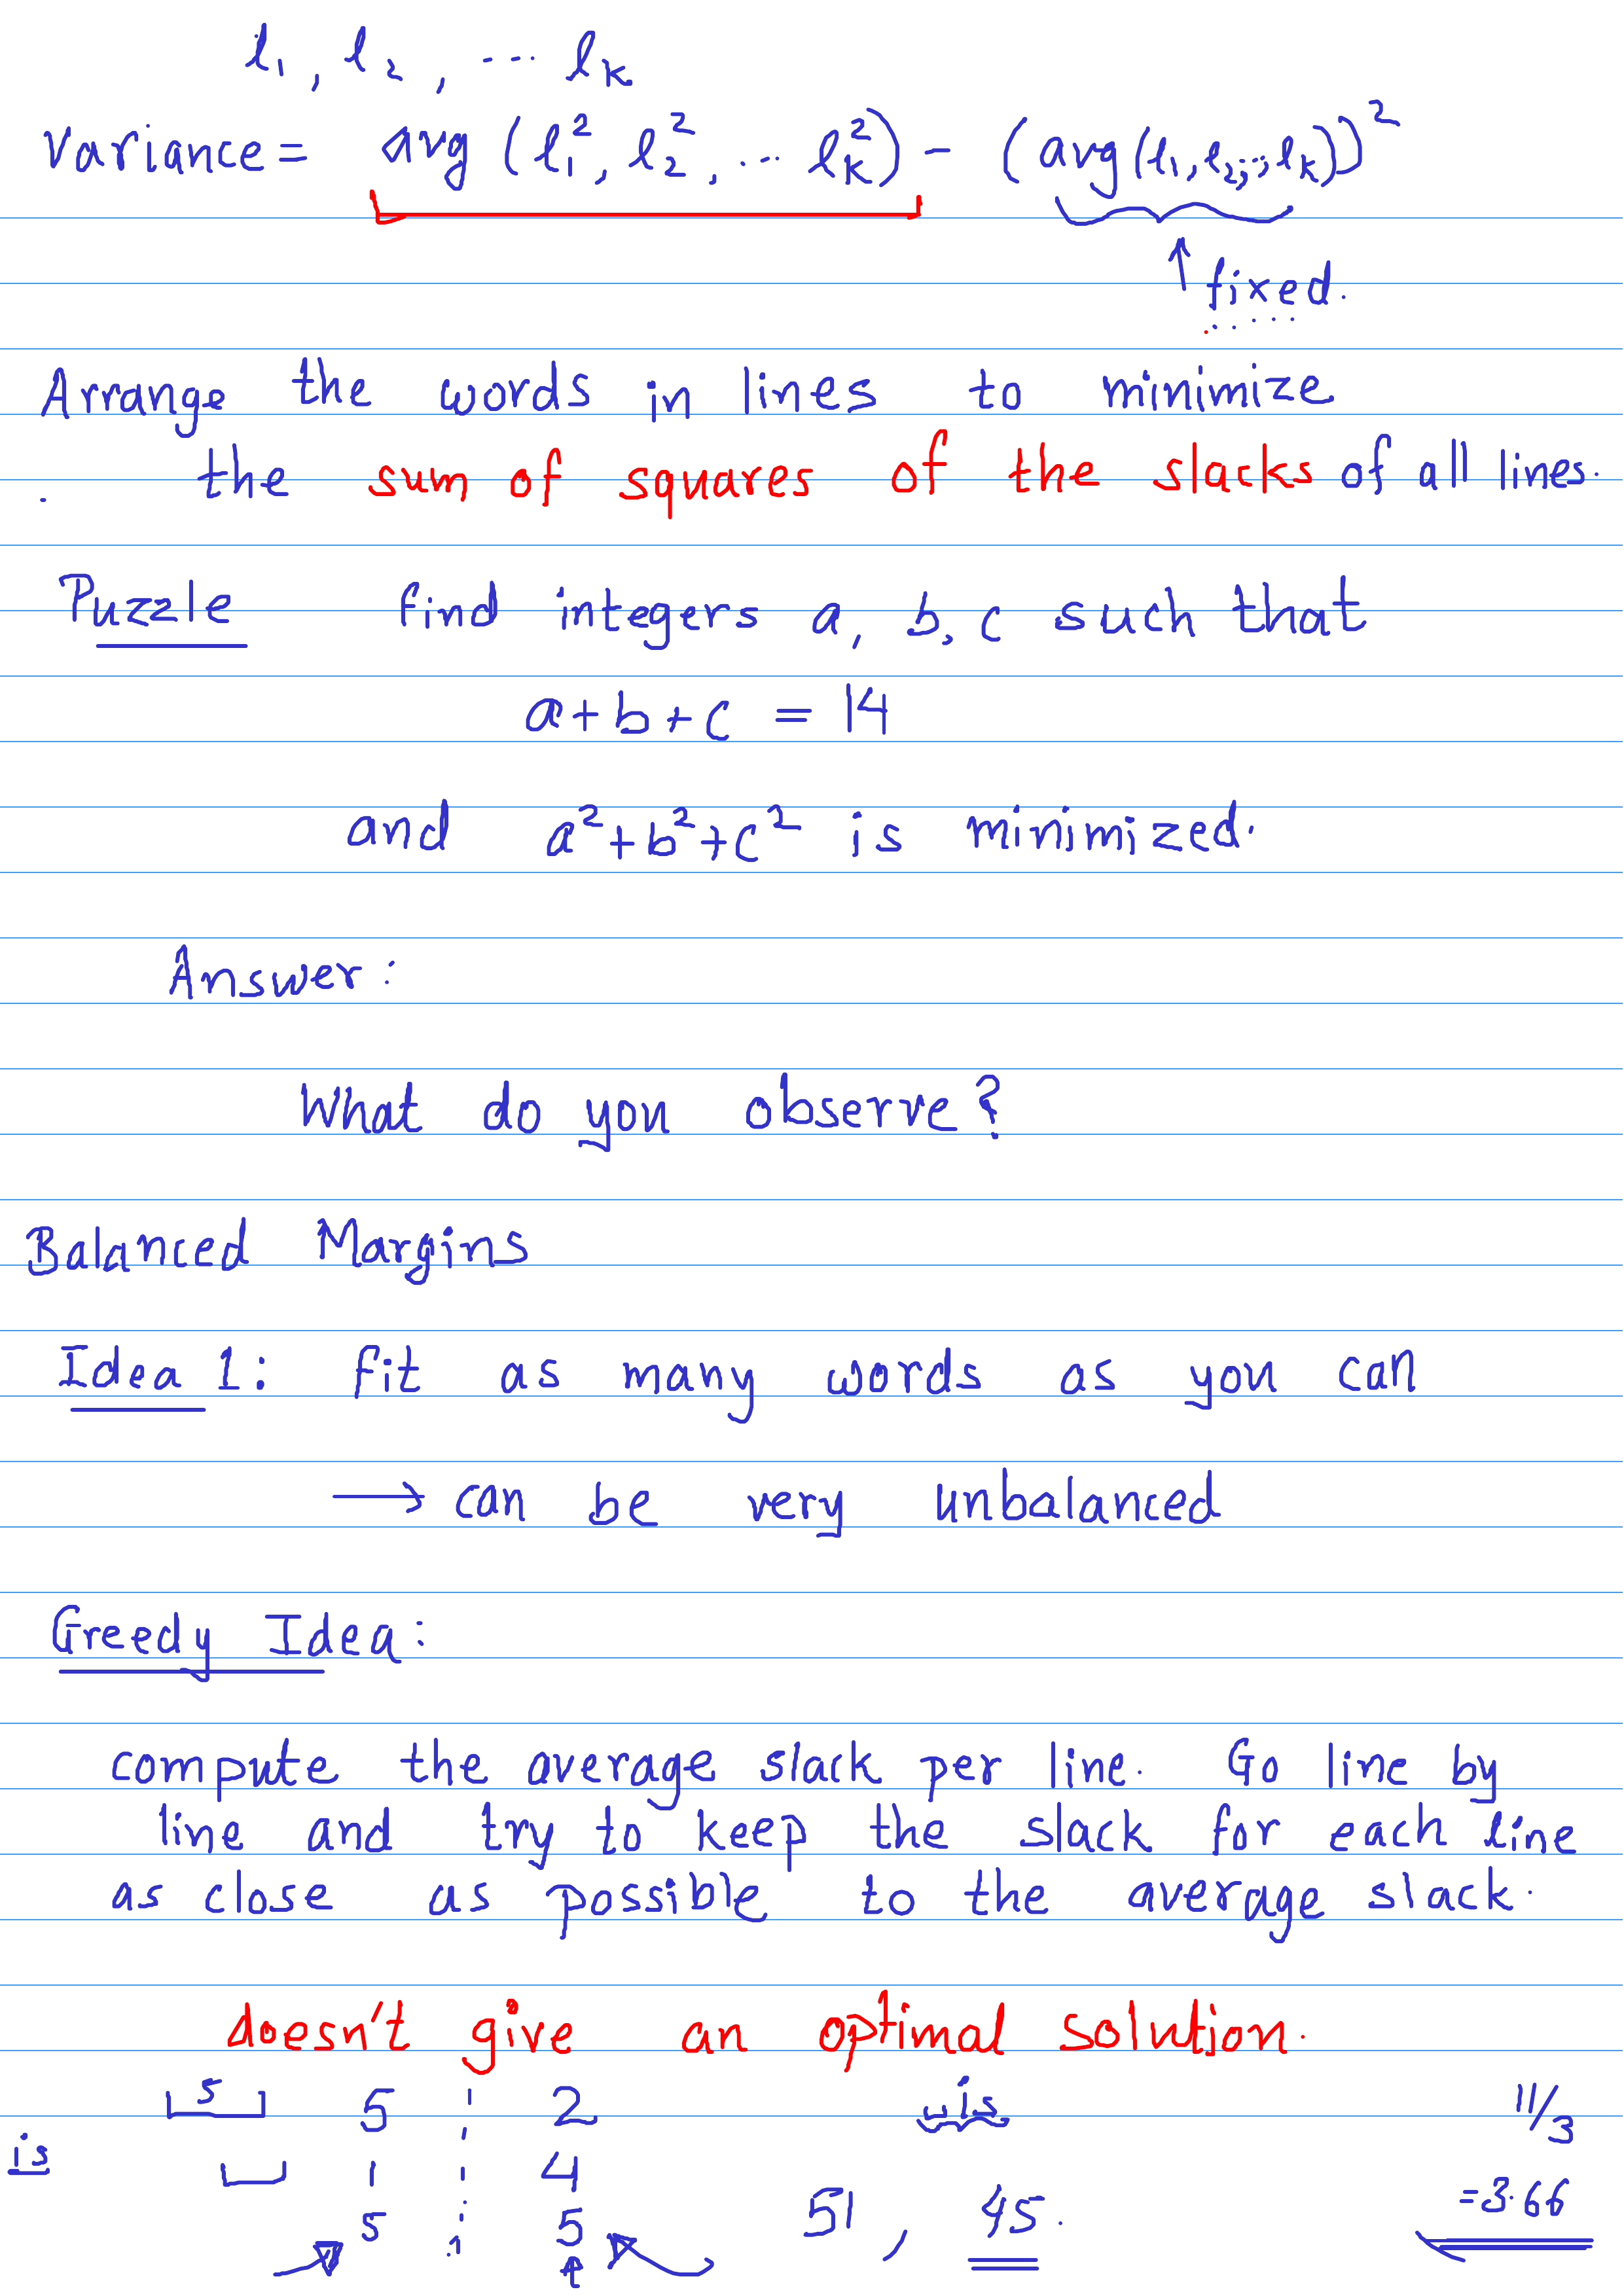 l₁, l₂, ... lₖ
Variance = avg (l₁², l₂², ... lₖ²) - (avg(l₁, l₂, ..., lₖ))²
fixed.
Arrange the words in lines to minimize
the sum of squares of the slacks of all lines.
Puzzle find integers a, b, c such that
a+b+c = 14
and a²+b²+c² is minimized.
Answer:
What do you observe?
Balanced Margins
Idea 1: fit as many words as you can
→ can be very unbalanced
Greedy Idea:
compute the average slack per line. Go line by
line and try to keep the slack for each line
as close as possible to the average slack.
doesn't give an optimal solution.
5 5 2 is 11/3
is 1 4
5 5 51, 45. =3.66